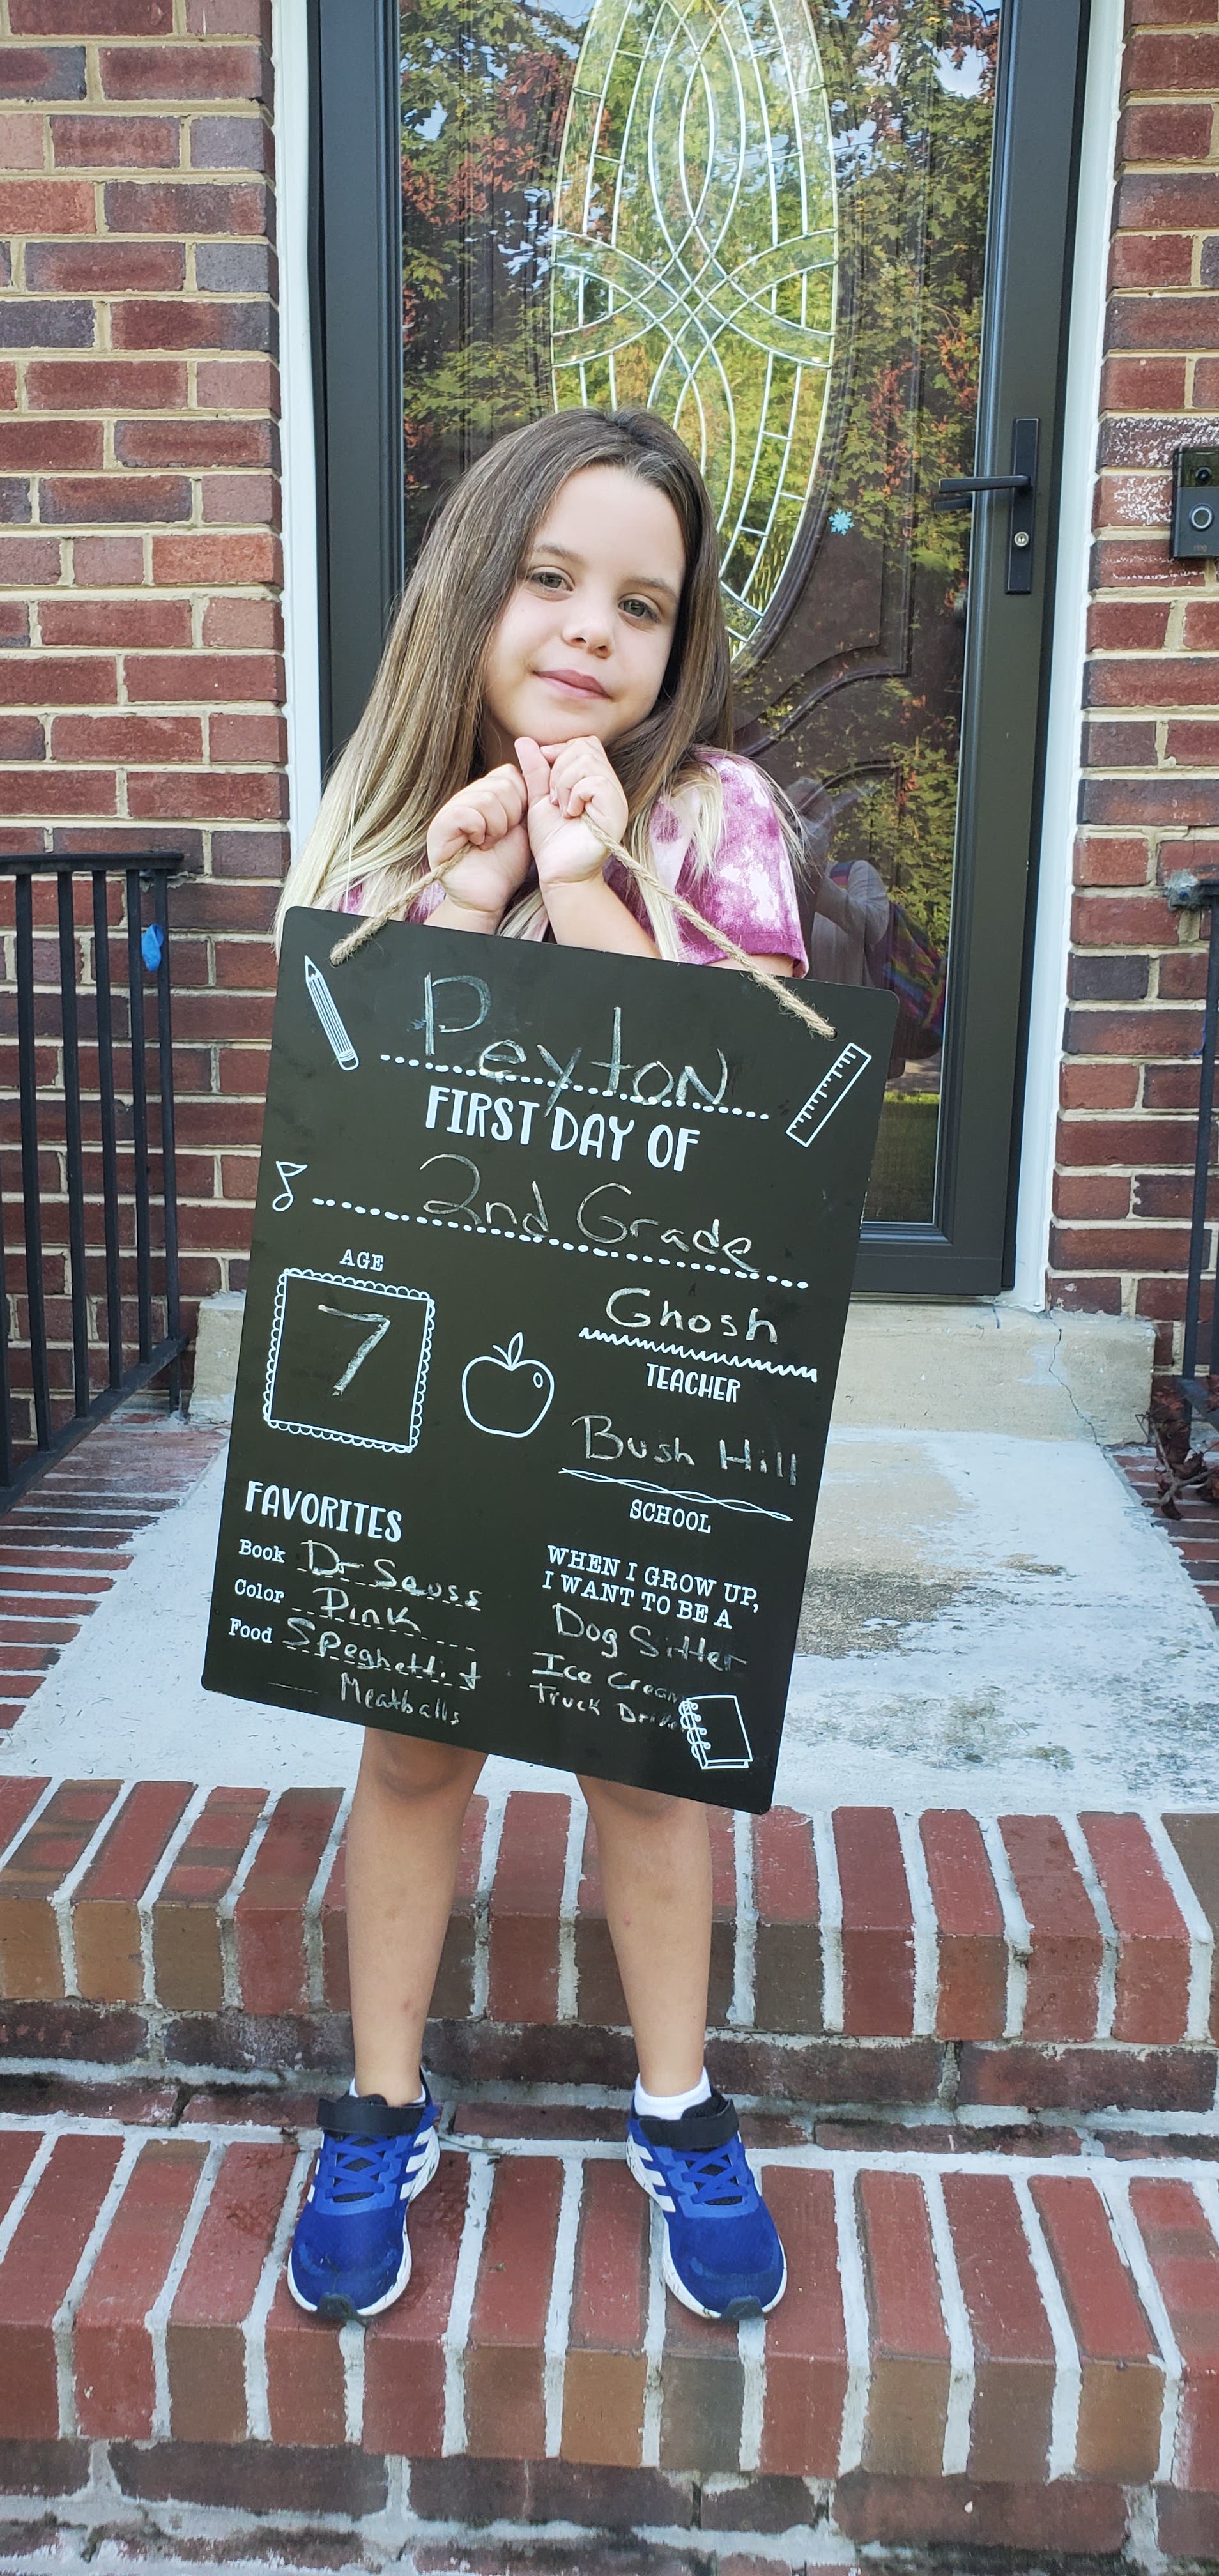 Peyton
FIRST DAY OF
2nd Grade
AGE
7
Ghosh
TEACHER
Bush Hill
SCHOOL
FAVORITES
Book Dr Seuss
Color Pink
Food Speghetti &
Meatballs
WHEN I GROW UP,
I WANT TO BE A
Dog Sitter
Ice Cream
Truck Driver